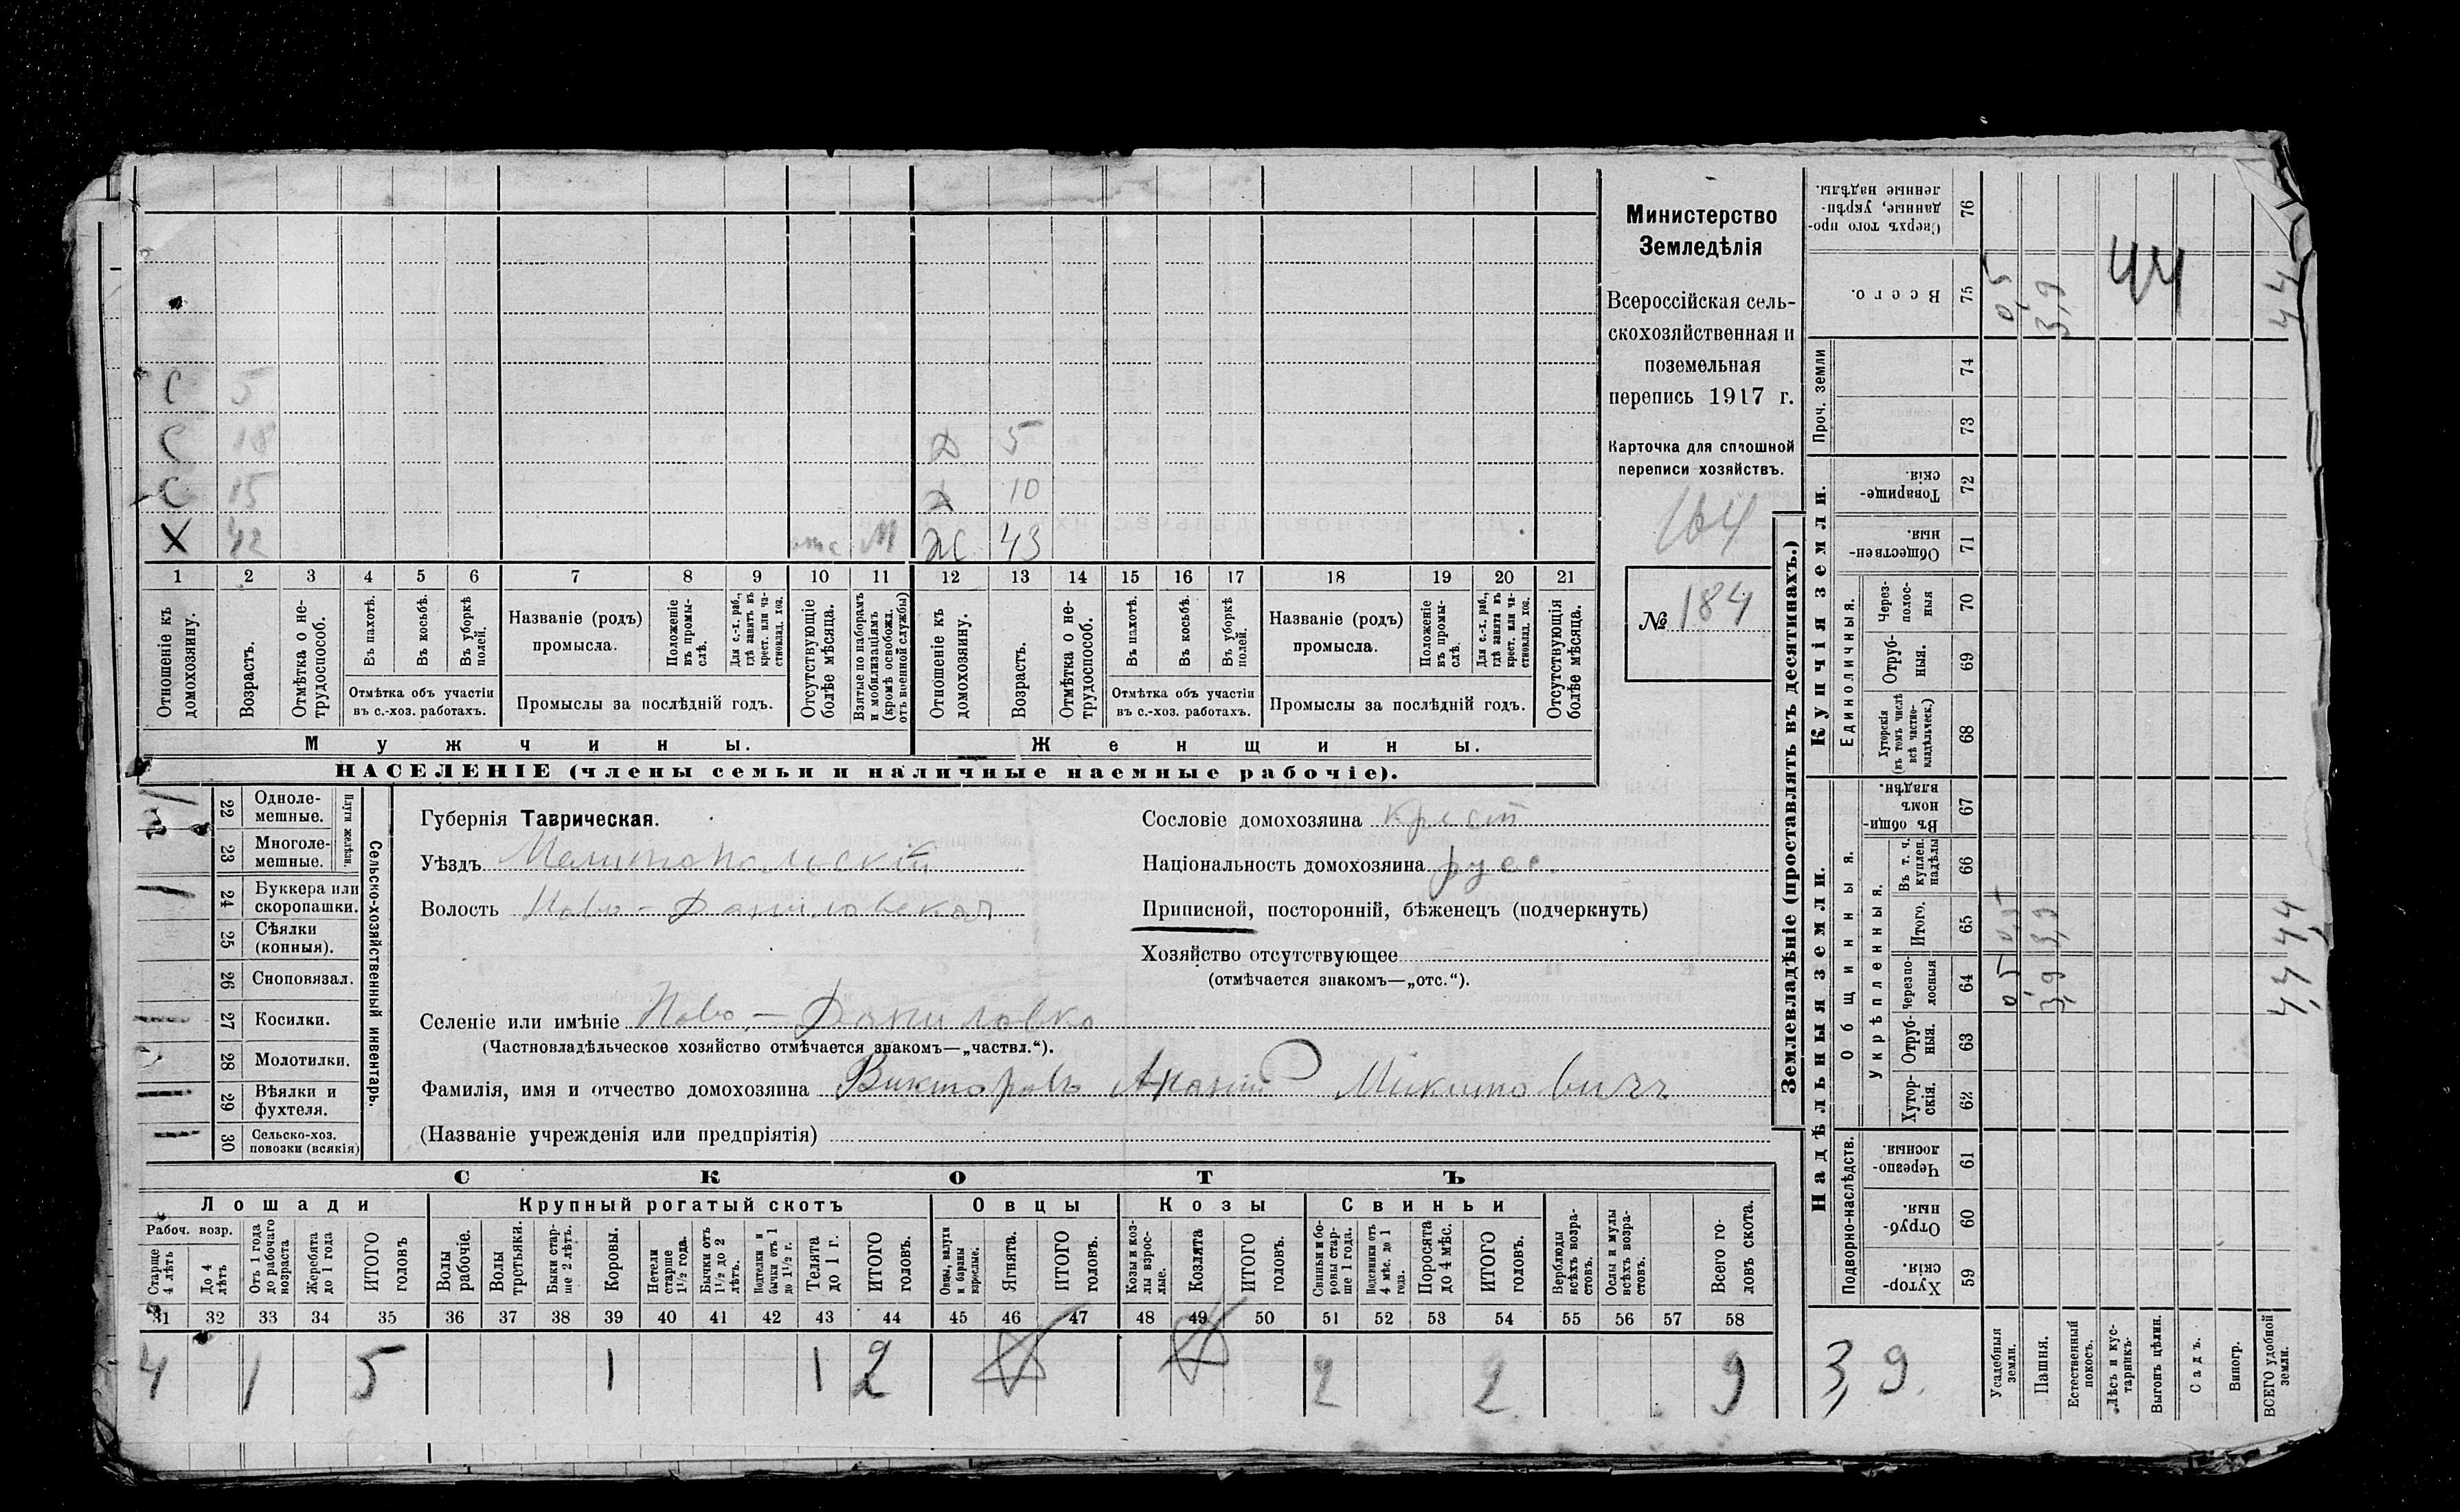 Министерство
Земледѣлія
Всероссійская сель-
скохозяйственная и
поземельная
перепись 1917 г.
Карточка для сплошной
переписи хозяйствъ.
164
№ 184
С 5
С 18 Д 5
С 15 Д 10
Х 42 отс. М Ж 43
1 2 3 4 5 6 7 8 9 10 11 12 13 14 15 16 17 18 19 20 21
Отношеніе къ домохозяину.
Возрастъ.
Отмѣтка о не-трудоспособ.
Въ пахотѣ.
Въ косьбѣ.
Въ уборкѣ полей.
Отмѣтка объ участіи
въ с.-хоз. работахъ.
Названіе (родъ)
промысла.
Положеніе въ промы-слѣ.
Для с.-х. раб., гдѣ занятъ въ крест. или ча-стновлад. хоз.
Промыслы за послѣдній годъ.
Отсутствующіе болѣе мѣсяца.
Взятые по наборамъ и мобилизаціямъ (кромѣ освобожд. отъ военной службы)
Отношеніе къ домохозяину.
Возрастъ.
Отмѣтка о не-трудоспособ.
Въ пахотѣ.
Въ косьбѣ.
Въ уборкѣ полей.
Отмѣтка объ участіи
въ с.-хоз. работахъ.
Названіе (родъ)
промысла.
Положеніе въ промы-слѣ.
Для с.-х. раб., гдѣ занята въ крест. или ча-стновлад. хоз.
Промыслы за послѣдній годъ.
Отсутствующія болѣе мѣсяца.
Мужчины. Женщины.
НАСЕЛЕНІЕ (члены семьи и наличные наемные рабочіе).
Сельско-хозяйственный инвентарь.
Плуги желѣзн.
22 Одноле-мешные.
23 Многоле-мешные.
24 Буккера или скоропашки.
25 Сѣялки (конныя).
26 Сноповязал.
27 Косилки.
28 Молотилки.
29 Вѣялки и фухтеля.
30 Сельско-хоз. повозки (всякія)
Губернія Таврическая.
Уѣздъ Мелитопольскій
Волость Ново-Даниловская
Селеніе или имѣніе Ново-Даниловка
(Частновладѣльческое хозяйство отмѣчается знакомъ—„частвл.“).
Фамилія, имя и отчество домохозяина Викторовъ Микитовичъ
(Названіе учрежденія или предпріятія)
Сословіе домохозяина крест
Національность домохозяина русс.
Приписной, посторонній, бѣженецъ (подчеркнуть)
Хозяйство отсутствующее
(отмѣчается знакомъ—„отс.“).
СКОТЪ
Лошади Крупный рогатый скотъ Овцы Козы Свиньи
Рабоч. возр.
Старше 4 лѣтъ
До 4 лѣтъ
Отъ 1 года до рабочаго возраста
Жеребята до 1 года
ИТОГО головъ
Волы рабочіе.
Волы третьяки.
Быки стар-ше 2 лѣтъ.
Коровы.
Нетели старше 1½ года.
Бычки отъ 1½ до 2 лѣтъ.
Подтелки и бычки отъ 1 до 1½ г.
Телята до 1 г.
ИТОГО головъ.
Овцы, валухи и бараны взрослые.
Ягнята.
ИТОГО головъ.
Козы и коз-лы взрос-лые.
Козлята
ИТОГО головъ.
Свиньи и бо-ровы стар-ше 1 года.
Подсвинки отъ 4 мѣс. до 1 года.
Поросята до 4 мѣс.
ИТОГО головъ.
Верблюды всѣхъ возра-стовъ.
Ослы и мулы всѣхъ возра-стовъ.
Всего го-ловъ скота.
31 32 33 34 35 36 37 38 39 40 41 42 43 44 45 46 47 48 49 50 51 52 53 54 55 56 57 58
4 1 5 1 1 2 2 2 9
Землевладѣніе (проставлять въ десятинахъ.)
Надѣльныя земли.
Купчія земли.
Проч. земли
Подворно-наслѣдств.
Общинныя.
Укрѣпленныя.
Единоличныя.
Хутор-скія. 59
Отруб-ныя. 60
Черезпо-лосныя 61
Хутор-скія. 62
Отруб-ныя. 63
Черезпо-лосныя 64
Итого. 65
Въ т. ч. куплен. надѣлы 66
Въ общи-номъ владѣн. 67
Хуторскія (въ томъ числѣ всѣ частно-владѣльческ.) 68
Отруб-ныя. 69
Через-полос-ныя 70
Обществен-ныя 71
Товарище-скія 72
73
74
Всего. 75
Сверхъ того про-данные, укрѣп-ленные надѣлы. 76
Усадебныя земли. 0,5 0,5 0,5
Пашня. 3,9 3,9 3,9
Естественный покосъ.
Лѣсъ и кус-тарникъ.
Выгонъ цѣлин.
Садъ.
Виногр.
ВСЕГО удобной земли. 4,4 4,4 4,4
44
3,9.